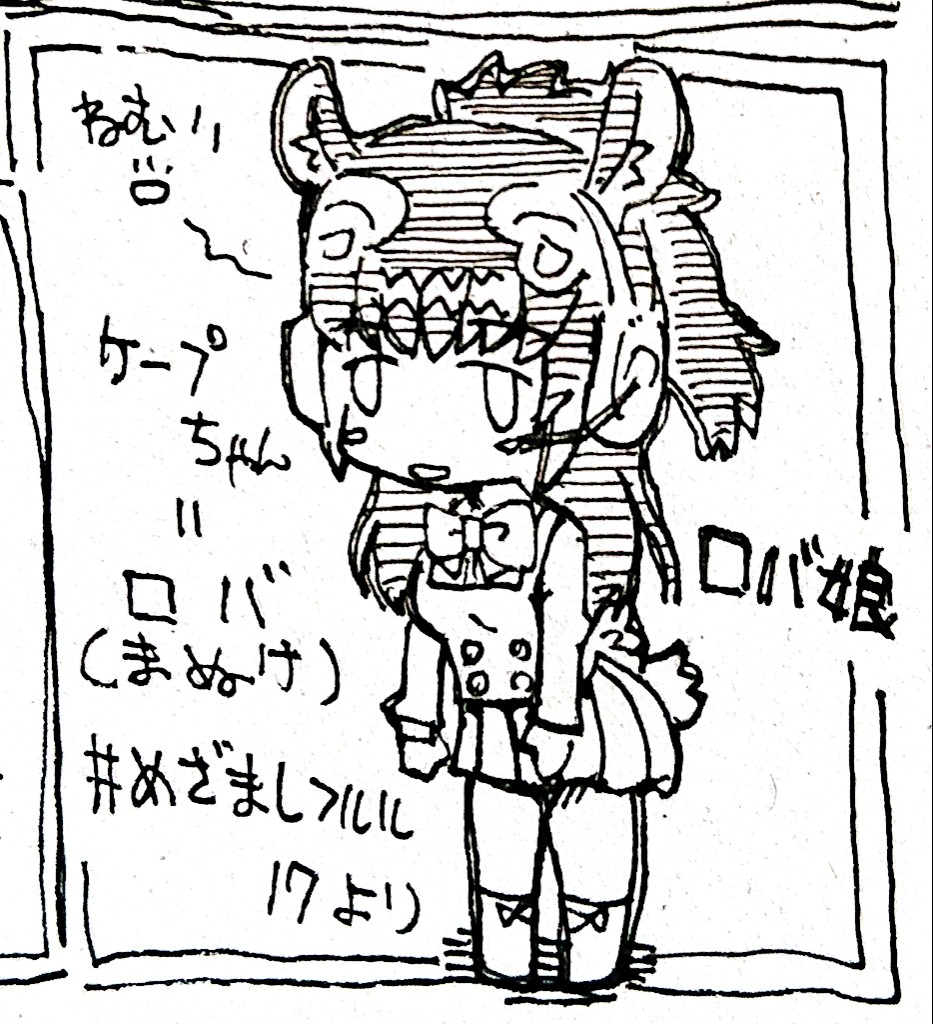 ねむい
ケープ
ちゃん
=
ロバ
(まぬけ)
#めざましフルル
17より
ロバ娘